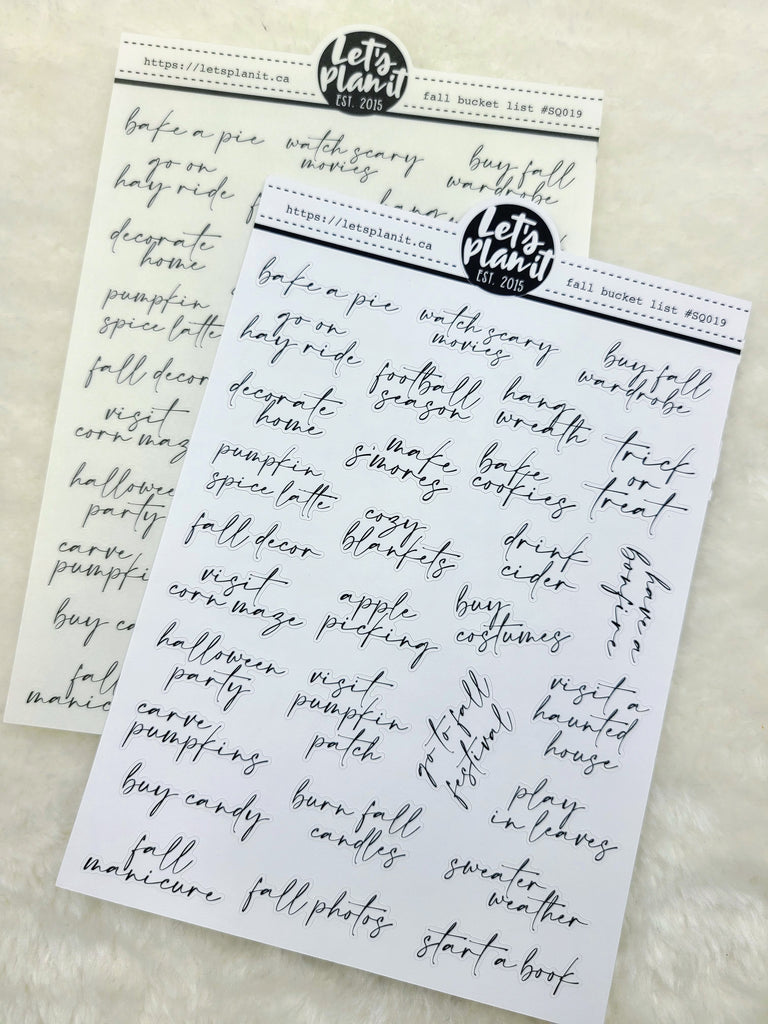 https://letsplanit.ca
Let's
plan it
EST. 2015
fall bucket list #SQ019
bake a pie
watch scary
movies
buy fall
wardrobe
go on
hay ride
hang
decorate
home
pumpkin
spice latte
fall decor
visit
corn maz
hallowee
party
carve
pumpki
buy ca
fall
manic
https://letsplanit.ca
Let's
plan it
EST. 2015
fall bucket list #SQ019
bake a pie
watch scary
movies
buy fall
wardrobe
go on
hay ride
football
season
hang
wreath
trick
or
treat
decorate
home
make
s'mores
bake
cookies
pumpkin
spice latte
cozy
blankets
drink
cider
have a
bonfire
fall decor
visit
corn maze
apple
picking
buy
costumes
halloween
party
visit
pumpkin
patch
go to fall
festival
visit a
haunted
house
carve
pumpkins
buy candy
burn fall
candles
play
in leaves
fall
manicure
fall photos
sweater
weather
start a book